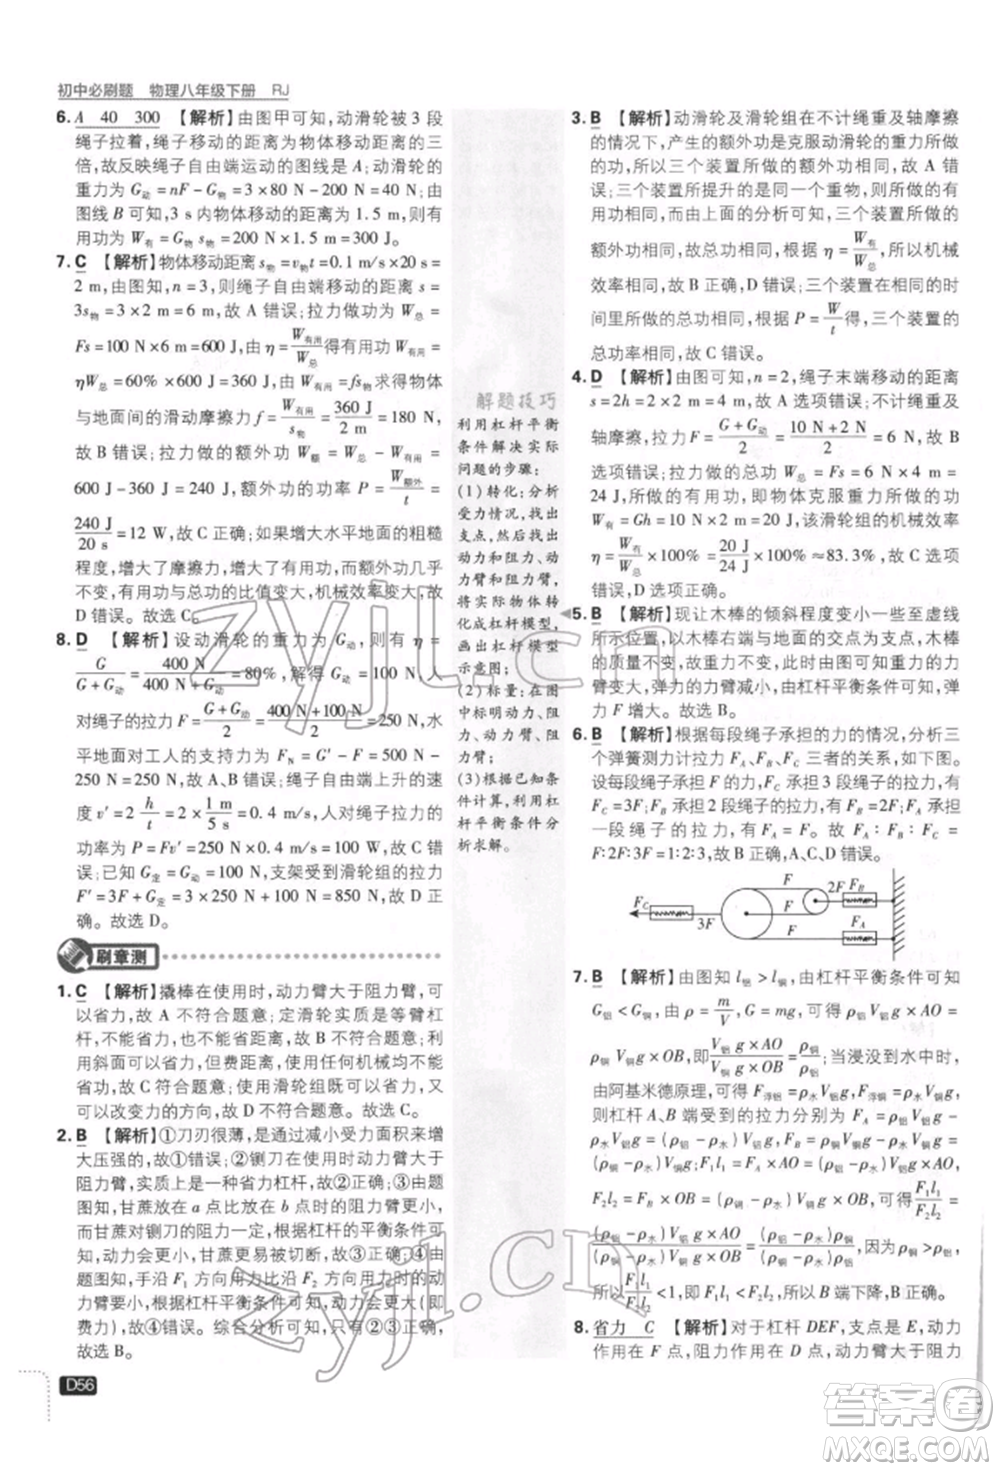 初中必刷题 物理八年级下册 RJ
6. A 40 300 【解析】由图甲可知,动滑轮被 3 段
绳子拉着,绳子移动的距离为物体移动距离的三
倍,故反映绳子自由端运动的图线为 A;动滑轮的
重力为 G动=nF-G物=3×80 N-200 N=40 N;由
图线 B 可知,3 s 内物体移动的距离为 1.5 m,则有
用功为 W有=G物 s物=200 N×1.5 m=300 J。
7. C 【解析】物体移动距离 s物=v物t=0.1 m/s×20 s=
2 m,由图可知,n=3,则绳子自由端移动的距离 s=
3s物=3×2 m=6 m,故 A 错误;拉力做功为 W总=
Fs=100 N×6 m=600 J,由 η=W有用/W总得有用功 W有用=
ηW总=60%×600 J=360 J;由 W有用=fs物求得物体
与地面间的滑动摩擦力 f=W有用/s物=360 J/2 m=180 N,
故 B 错误;拉力做的额外功 W额=W总-W有用=
600 J-360 J=240 J,额外功的功率 P=W额外/t=
240 J/20 s=12 W,故 C 正确;如果增大水平地面的粗糙
程度,增大了摩擦力,根据机械效率的概念可知,
有用功与总功的比值变大,机械效率变大,故
D 错误。故选 C。
8. D 【解析】设动滑轮的重力为 G动,则有 η=
G/(G+G动)=400 N/(400 N+G动)=80%,解得 G动=100 N,人
对绳子的拉力 F=(G+G动)/2=(400 N+100 N)/2=250 N,水
平地面对工人的支持力为 FN=G'-F=500 N-
250 N=250 N,故 A、B 错误;绳子自由端上升的速
度 v'=2 h/t=2×1 m/5 s=0.4 m/s,人对绳子拉力的
功率为 P=Fv'=250 N×0.4 m/s=100 W,故 C 错
误;已知 G定=G动=100 N,支架受到滑轮组的拉力
F'=3F+G定=3×250 N+100 N=850 N,故 D 正
确。故选 D。
刷章测
1. C 【解析】撬棒在使用时,动力臂大于阻力臂,可
以省力,故 A 不符合题意;定滑轮实质是等臂杠
杆,不能省力,也不能省距离,故 B 不符合题意;利
用斜面可以省力,但费距离,使用任何机械都不能
省功,故 C 符合题意;使用滑轮组可以省力,也可
以改变力的方向,故 D 不符合题意。故选 C。
2. B 【解析】①刀刃很薄,是通过减小受力面积来增
大压强的,故①错误;②铡刀在使用时,动力臂大
于阻力臂,是省力杠杆,故②正确;③由题
图知,甘蔗放在 a 点比放在 b 点时阻力臂更小,而
甘蔗对铡刀的阻力一定,根据杠杆的平衡条件可
知,动力会更小,甘蔗更易被切断,故③正确;④由
题图知,手沿 F1 方向用力比沿 F2 方向用力的动
力臂要小,根据杠杆平衡条件可知,动力更大(即
更费力),故④错误。综合分析可知②③正确,
故选 B。
D56
解题技巧
利用杠杆平衡
条件解决实际
问题的步骤:
(1)转化:分析
受力情况,找出
支点,然后找出
动力和阻力、动
力臂和阻力臂,
将实际物体转
化成杠杆模型,
画出杠杆模型
示意图;
(2)标量:在图
中标明动力、阻
力、动力臂、阻
力臂;
(3)根据已知条
件计算,利用杠
杆平衡条件分
析求解。
3. B 【解析】动滑轮及滑轮组在不计绳重及轴摩擦
的情况下,额外功是克服动滑轮的重力所做的
功,所以三个装置所做的额外功相同,故 A 错
误;三个装置所提升的是同一个重物,三个装置所
做的有用功相同,故 B 正确;三个装置所做的有用
功相同,由上面的分析可知,三个装置所做的
额外功相同,故总功相同,根据 η=W有/W总,所以机械
效率相同,故 D 错误;没有做功的时间,相同的时
间里所做的总功相同,根据 P=W/t得,三个装置的
功率相同,故 C 错误。
4. D 【解析】由图可知,n=2,绳子末端移动的距离
s=2h=2×2 m=4 m,故 A 选项错误;不计绳重及
轴摩擦,拉力 F=(G+G动)/2=(10 N+2 N)/2=6 N,故 B
选项错误;拉力的总功 W总=Fs=6 N×4 m=
24 J,所做的有用功,即物体克服重力所做的功
W有=Gh=10 N×2 m=20 J,该滑轮组的机械效率
η=W有/W总×100%=20 J/24 J×100%≈83.3%,故 C 选项
错误,D 选项正确。
5. B 【解析】现让木棒的倾斜程度变小一些至虚线
所示位置,以木棒右端与地面的交点为支点,木棒
的重力不变,弹簧的重力不变,木棒的重力的力
臂变大,弹力的力臂减小,由杠杆平衡条件可知,弹
力 F 增大。故选 B。
6. B 【解析】根据每段绳子承担的力的情况,分析
三个弹簧测力计拉力 FA、FB、FC 三者的关系,如下图。
设每段绳子承担 F 的拉力,FC 承担 3 段绳子的拉力,
FC=3F;FB 承担 2 段绳子的拉力,FB=2F;FA 承担
一段绳子的拉力,有 FA=F。故 FA∶FB∶FC=
F∶2F∶3F=1∶2∶3,故 B 正确,A、C、D 错误。故选 B。
FC 3F F F F 2F FB FA
7. B 【解析】由图知 l铝>l铜,由杠杆平衡条件可知
G铝<G铜,由 ρ=m/V、G=mg 可得
ρ铜 V铜 g×OB,即(ρ铝 V铝 g×AO)/(ρ铜 V铜 g×OB)=1;当浸没到水中时,
由阿基米德原理,可得 F浮铝=ρ水V铝g,F浮铜=ρ水V铜g,
则杠杆 A、B 端受到的拉力分别为
(ρ铜-ρ水)V铜g×OB,可得F1l1/F2l2=
8. 省力 C 【解析】对于杠杆 DEF,支点是 E,动力
作用在 F 点、阻力作用在 D 点,动力臂大于阻力